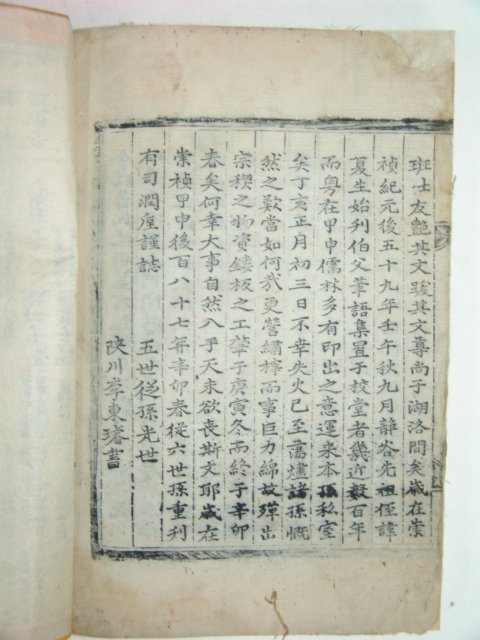 班士友艶其文跋其文尊尚于湖洛間矣歲在崇
禎紀元後五十九年壬午秋九月韶谷先祖侄諱
夏生始刊伯父筆語集置于校堂者幾近數百年
而粤在甲申儒林多有印出之意運来本孫私室
矣丁亥正月初三日不幸失火已至蕩爐諸孫慨
然之歎當如何㦲更營繡梓而事巨力綿故殫出
宗稧之物資鋟板之工肇于庚寅冬而終于辛卯
春矣何幸大事自然入手天未欲喪斯文耶歲在
崇禎甲申後百八十七年辛卯春從六世孫重刊
有司潤垕謹誌
五世從孫光世
陜川李東璿書